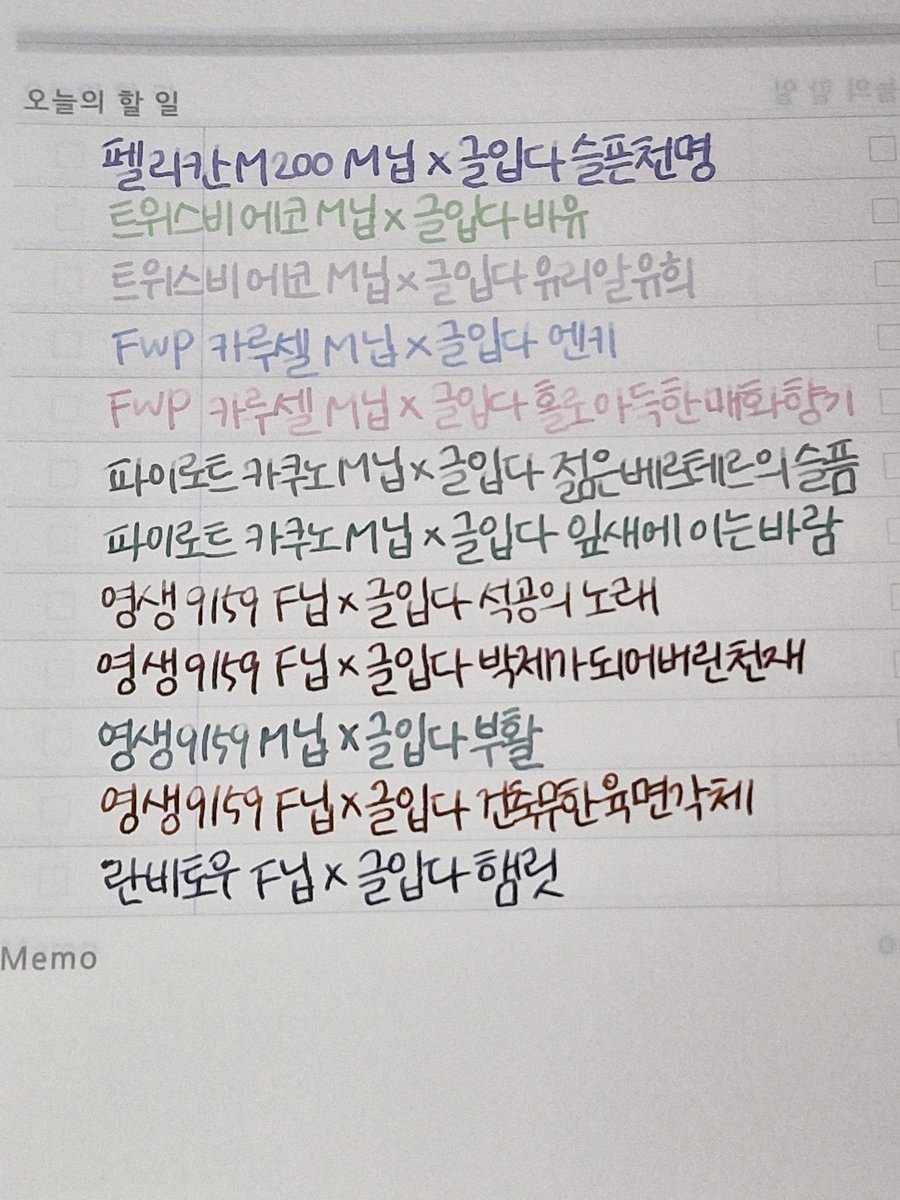 오늘의 할 일
펠리칸 M200 M닙 x 글입다 슬픈천명
트위스비 에코 M닙 x 글입다 바유
트위스비 에코 M닙 x 글입다 유리알유희
FWP 카루셀 M닙 x 글입다 엔키
FWP 카루셀 M닙 x 글입다 홀로 아득한 매화향기
파이로트 카쿠노 M닙 x 글입다 젊은베르테르의 슬픔
파이로트 카쿠노 M닙 x 글입다 잎새에 이는 바람
영생 9159 F닙 x 글입다 석공의 노래
영생 9159 F닙 x 글입다 박제가되어버린천재
영생 9159 M닙 x 글입다 부활
영생 9159 F닙 x 글입다 건축무한육면각체
란비토우 F닙 x 글입다 햄릿
Memo